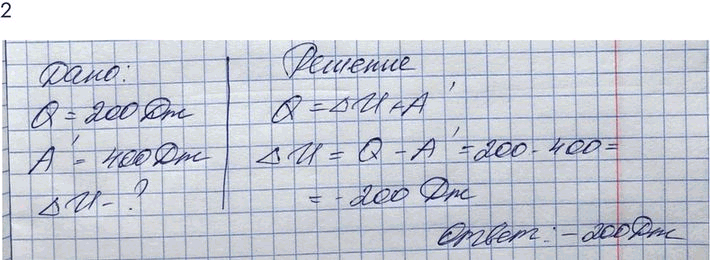 2
Дано:
Q = 200 Дж
A' = 400 Дж
ΔU - ?
Решение
Q = ΔU + A'
ΔU = Q - A' = 200 - 400 =
= -200 Дж
Ответ: -200 Дж